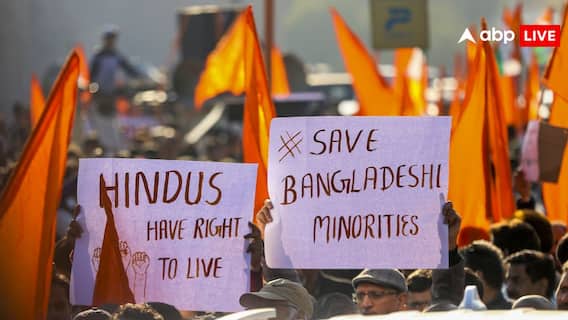 abp LIVE
HINDUS
HAVE RIGHT
TO LIVE
#SAVE
BANGLADESHI
MINORITIES